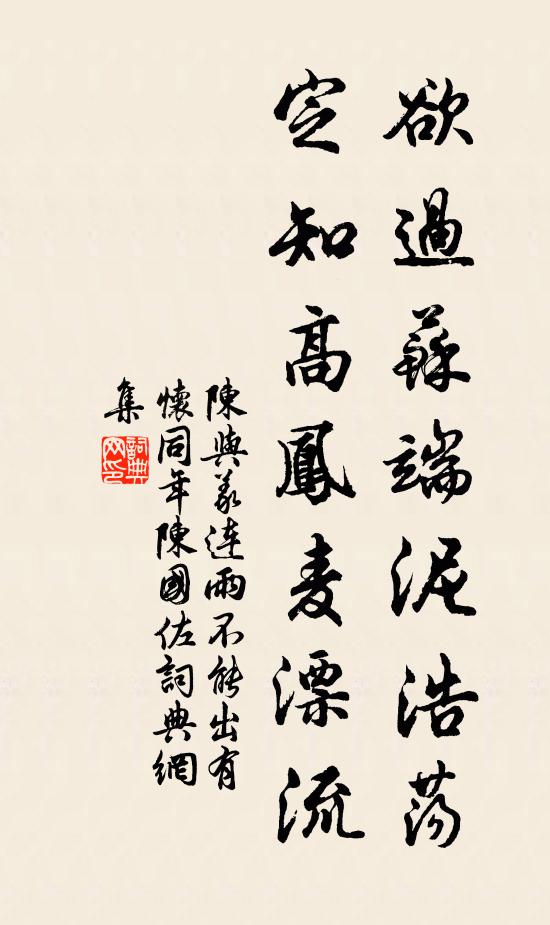 欲過蘇端泥浩蕩
定知高鳳麦漂流
陳與義連雨不能出有
懷同年陳國佐詞典網
集
詞典
网印